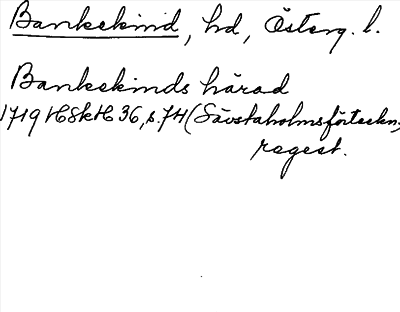 Bankekind, hd, Österg. l.
Bankekinds härad
1719 HSkH 36, s. 74 (Sävstaholmsförteckn.,
regest.